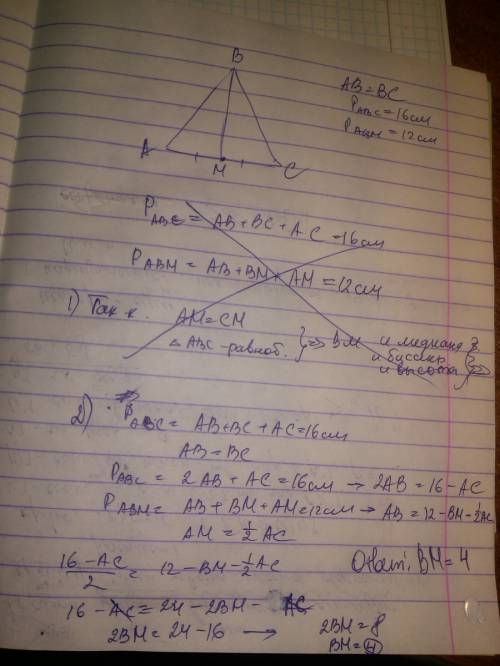 B
AB = BC
P ABC = 16 см
P ABM = 12 см
A
M
C
P ABC = AB + BC + AC = 16 см
P ABM = AB + BM + AM = 12 см
1) Так к. AM = CM
△ ABC - равноб. } => BM и медиана
и биссектр
и высота } =>
2) P ABC = AB + BC + AC = 16 см
AB = BC
P ABC = 2 AB + AC = 16 см → 2AB = 16 - AC
P ABM = AB + BM + AM = 12 см → AB = 12 - BM - ½ AC
AM = ½ AC
(16 - AC)/2 = 12 - BM - ½ AC
Ответ: BM = 4
16 - AC = 24 - 2BM - AC
2BM = 24 - 16 → 2BM = 8
BM = 4